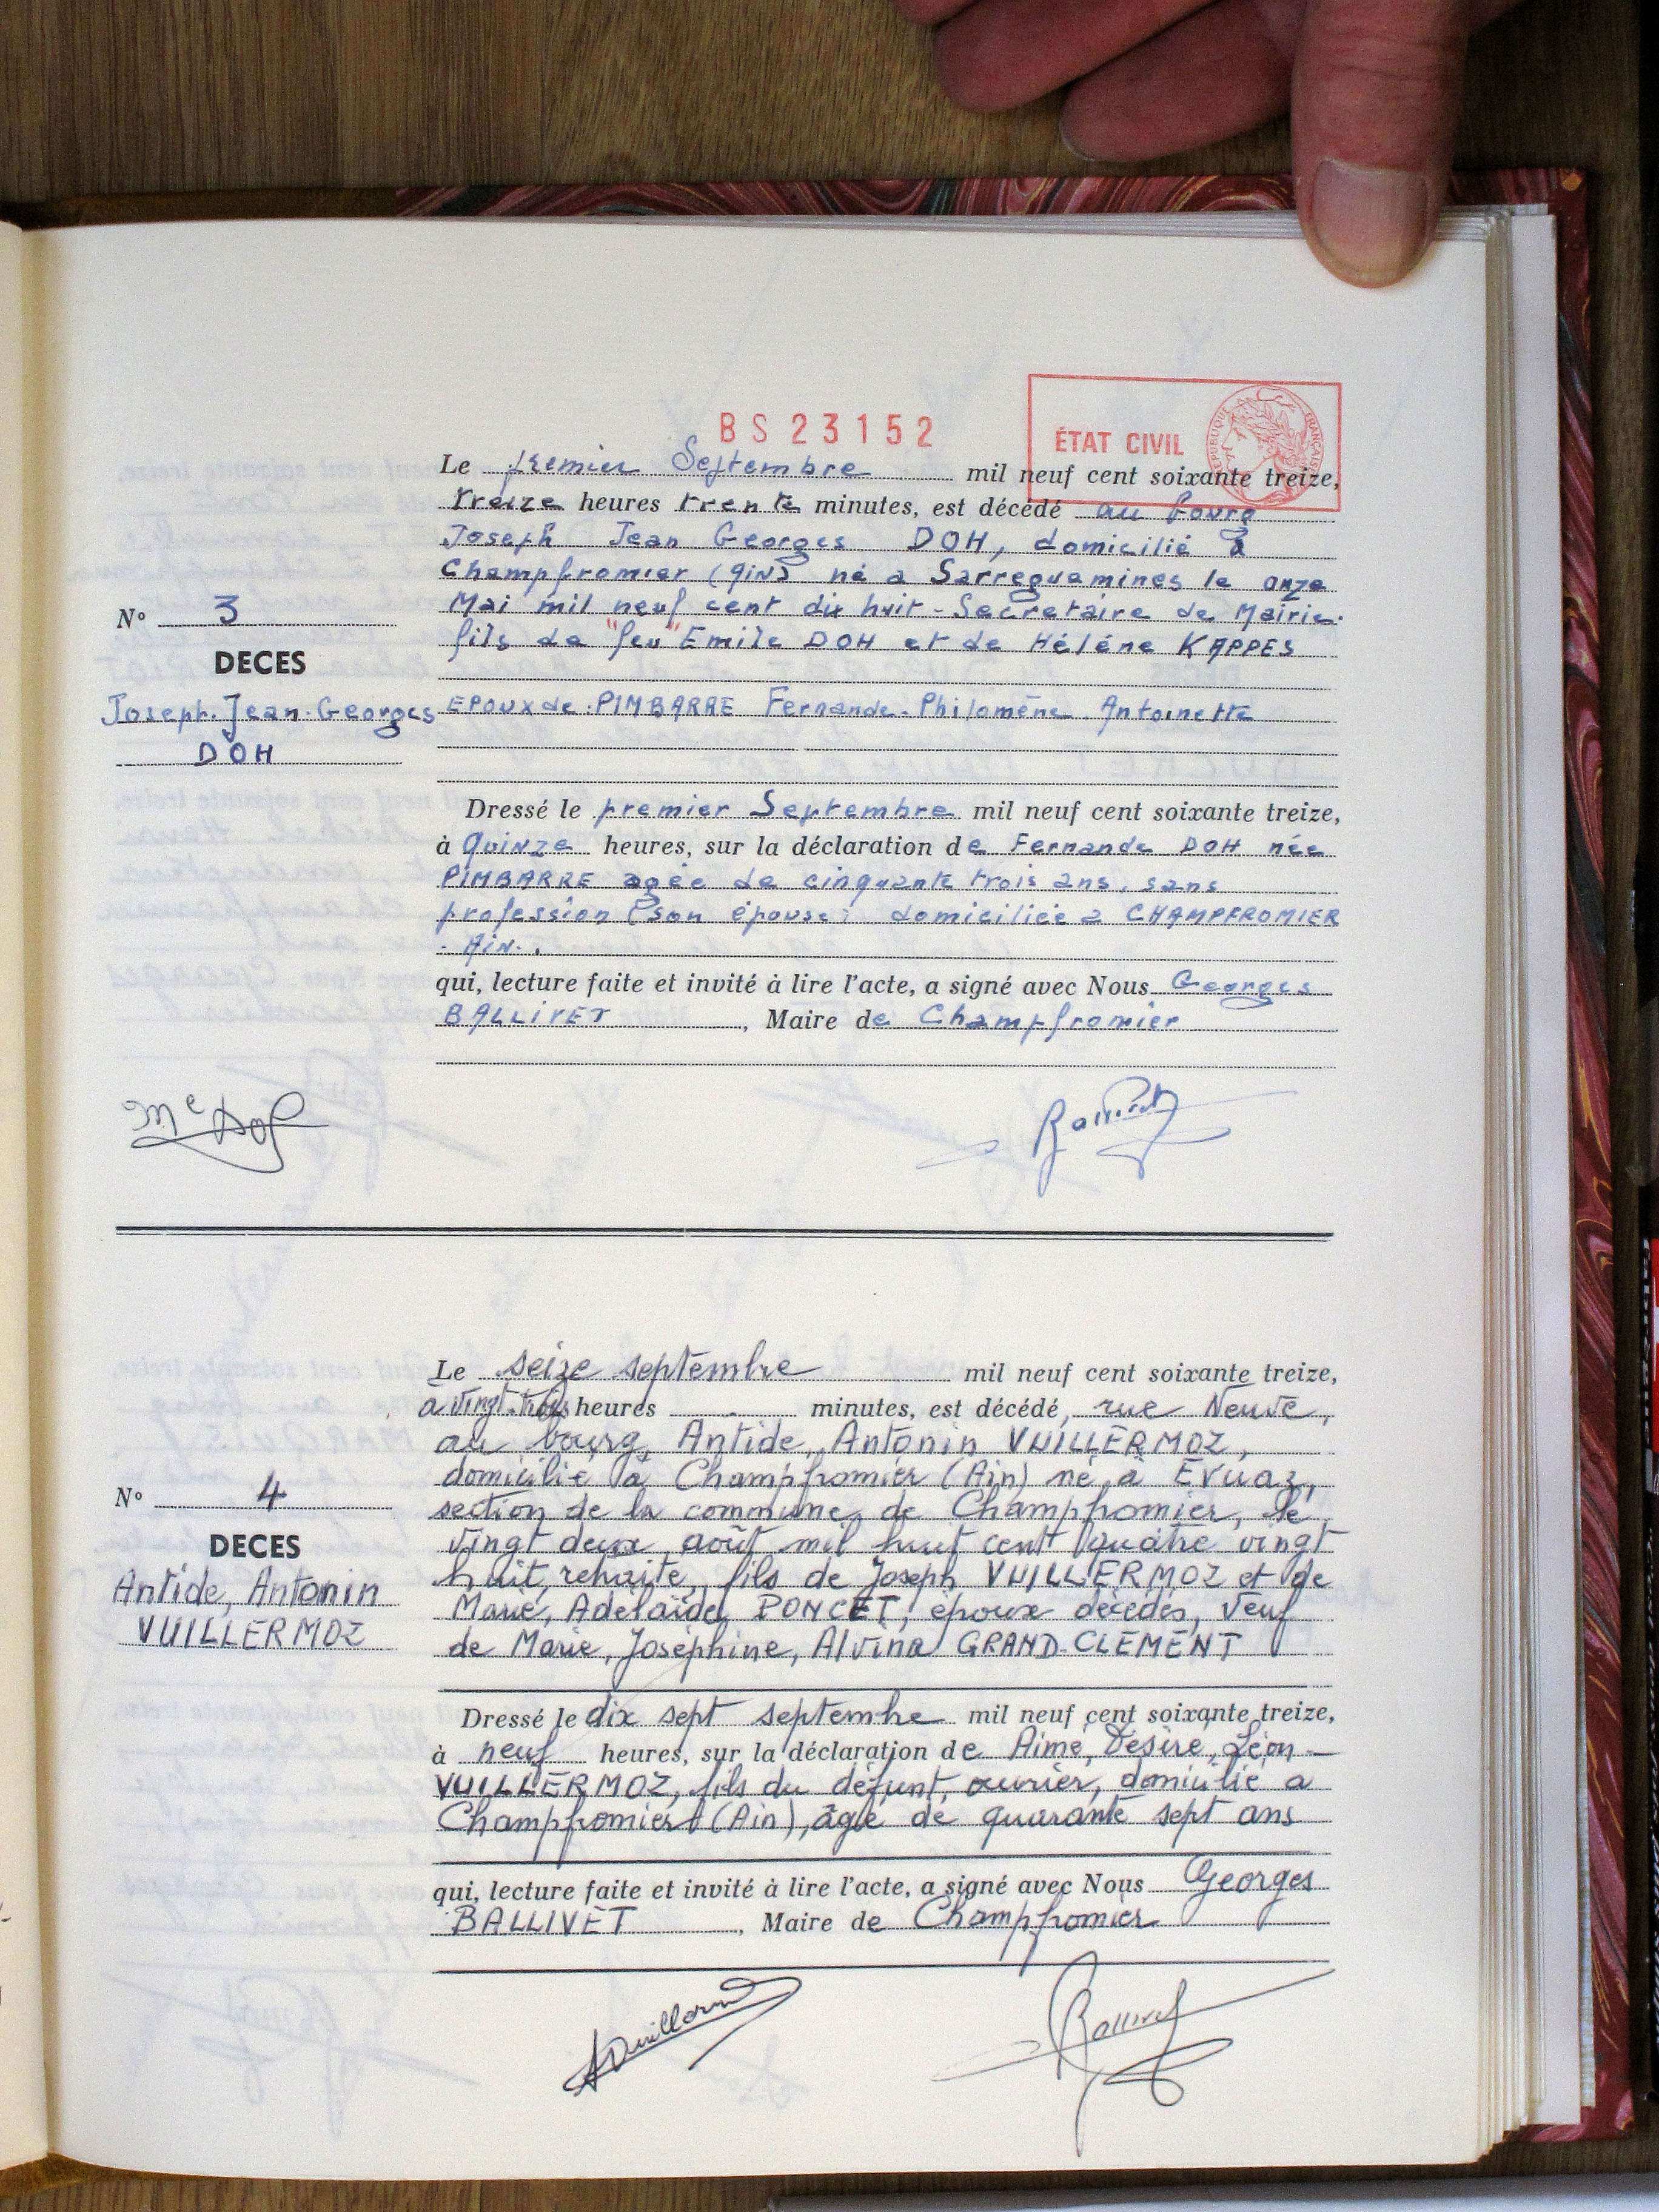 BS 23152
ÉTAT CIVIL
RÉPUBLIQUE FRANÇAISE
Le premier Septembre mil neuf cent soixante treize,
treize heures trente minutes, est décédé au bourg
Joseph Jean Georges DOH, domicilié à
Champfromier (Ain) né a Sarreguemines le onze
Mai mil neuf cent dix huit - Secretaire de Mairie.
fils de "feu" Emile DOH et de Héléne KAPPES
EPoux de PIMBARRE Fernande. Philoméne Antoinette
N° 3
DECES
Joseph. Jean. Georges
DOH
Dressé le premier Septembre mil neuf cent soixante treize,
à quinze heures, sur la déclaration de Fernande DOH née
PIMBARRE agée de cinquante trois ans, sans
profession (son épouse) domiciliée a CHAMPFROMIER
- Ain.
qui, lecture faite et invité à lire l'acte, a signé avec Nous Georges
BALLIVET, Maire de Champfromier
Me Doh
Ballivet
Le seize septembre mil neuf cent soixante treize,
à vingt-trois heures - minutes, est décédé, rue Neuve,
au bourg, Antide, Antonin VUILLERMOZ,
domicilié à Champfromier (Ain) né à ÉVUAZ,
section de la commune de Champfromier, le
vingt deux août mil huit cent quatre vingt
huit, retraité, fils de Joseph VUILLERMOZ et de
Marie, Adélaïde PONCET, époux décédés, veuf
de Marie, Joséphine, Alvina GRAND-CLÉMENT
N° 4
DECES
Antide, Antonin
VUILLERMOZ
Dressé le dix sept septembre mil neuf cent soixante treize,
à neuf heures, sur la déclaration de Aimé, Désiré, Léon
VUILLERMOZ, fils du défunt, ouvrier, domicilié à
Champfromier (Ain), âgé de quarante sept ans
qui, lecture faite et invité à lire l'acte, a signé avec Nous Georges
BALLIVET, Maire de Champfromier
Ballivet